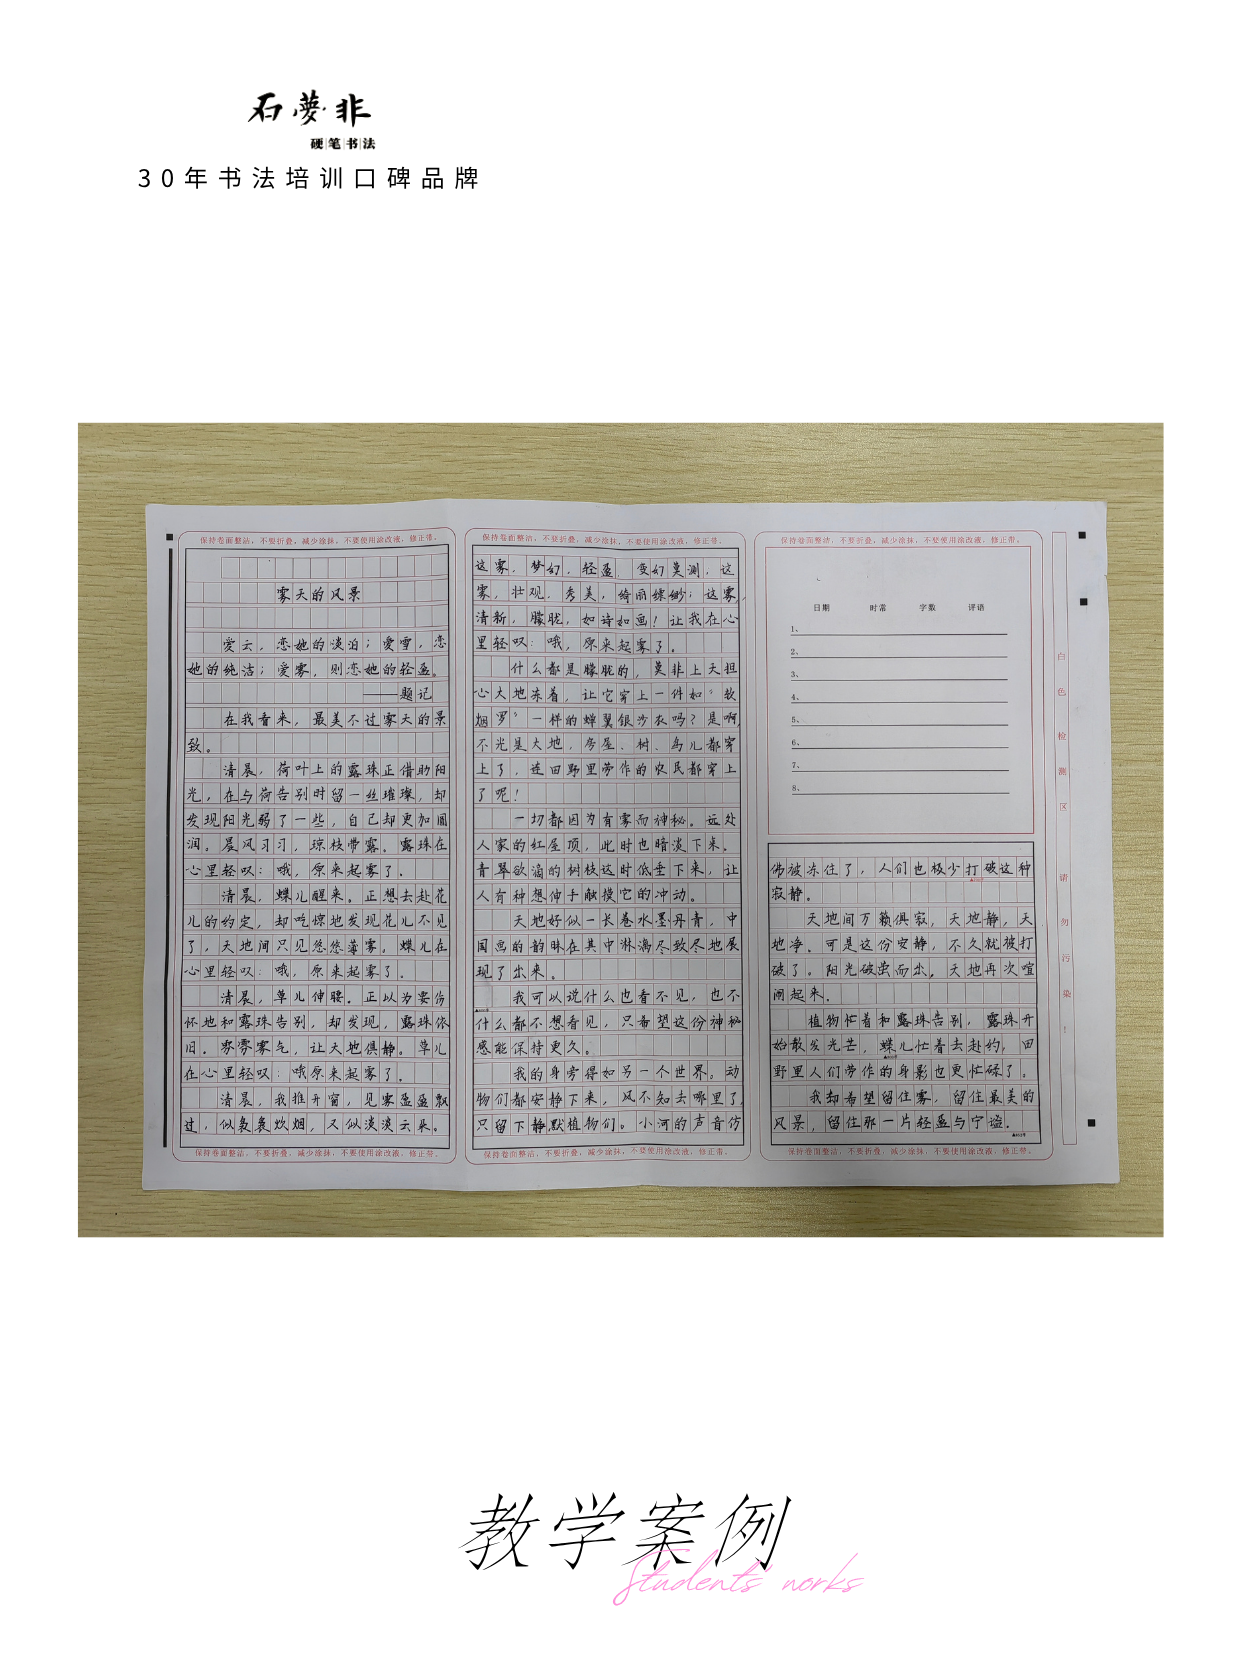 石夢非
硬笔书法
30年书法培训口碑品牌
保持卷面整洁，不要折叠，减少涂抹，不要使用涂改液，修正带。
雾天的风景
爱云，恋她的淡泊；爱雪，恋
她的纯洁；爱雾，则恋她的轻盈。
——题记
在我看来，最美不过雾天的景
致。
清晨，荷叶上的露珠正借助阳
光，在与荷告别时留一丝璀璨，却
发现阳光弱了一些，自己却更加圆
润。晨风习习，琼枝带露。露珠在
心里轻叹：哦，原来起雾了。
清晨，蝶儿醒来。正想去赴花
儿的约定，却吃惊地发现花儿不见
了，天地间只见悠悠薄雾。蝶儿在
心里轻叹：哦，原来起雾了.
清晨，草儿伸腰。正以为要伤
怀地和露珠告别，却发现，露珠依
旧。雰雰雾气，让天地俱静。草儿
在心里轻叹：哦原来起雾了.
清晨，我推开窗，见雾盈盈飘
过，似袅袅炊烟，又似淡淡云朵。
保持卷面整洁，不要折叠，减少涂抹，不要使用涂改液，修正带。
保持卷面整洁，不要折叠，减少涂抹，不要使用涂改液，修正带。
这雾，梦幻，轻盈，变幻莫测，这
雾，壮观，秀美，绮丽缥缈；这雾，
清新，朦胧，如诗如画！让我在心
里轻叹：哦，原来起雾了。
什么都是朦胧的，莫非上天担
心大地冻着，让它穿上一件如“软
烟罗”一样的蝉翼银沙衣吗？是啊，
不光是大地，房屋、树、鸟儿都穿
上了，连田野里劳作的农民都穿上
了呢！
一切都因为有雾而神秘。远处
人家的红屋顶，此时也暗淡下来.
青翠欲滴的树枝这时低垂下来，让
人有种想伸手触摸它的冲动。
天地好似一长卷水墨丹青，中
国画的韵味在其中淋漓尽致尽地展
现了出来。
我可以说什么也看不见，也不
什么都不想看见，只希望这份神秘
感能保持更久。
我的身旁得如另一个世界。动
物们都安静下来，风不知去哪里了，
只留下静默植物们。小河的声音仿
保持卷面整洁，不要折叠，减少涂抹，不要使用涂改液，修正带。
保持卷面整洁，不要折叠，减少涂抹，不要使用涂改液，修正带。
日期 时常 字数 评语
1、
2、
3、
4、
5、
6、
7、
8、
佛被冻住了，人们也极少打破这种
寂静。
天地间万籁俱寂，天地静，天
地净。可是这份安静，不久就被打
破了。阳光破茧而出，天地再次喧
闹起来.
植物忙着和露珠告别，露珠开
始散发光芒，蝶儿忙着去赴约，田
野里人们劳作的身影也更忙碌了。
我却希望留住雾，留住最美的
风景，留住那一片轻盈与宁谧.
保持卷面整洁，不要折叠，减少涂抹，不要使用涂改液，修正带。
白色检测区 请勿污染！
教学案例
Students' works